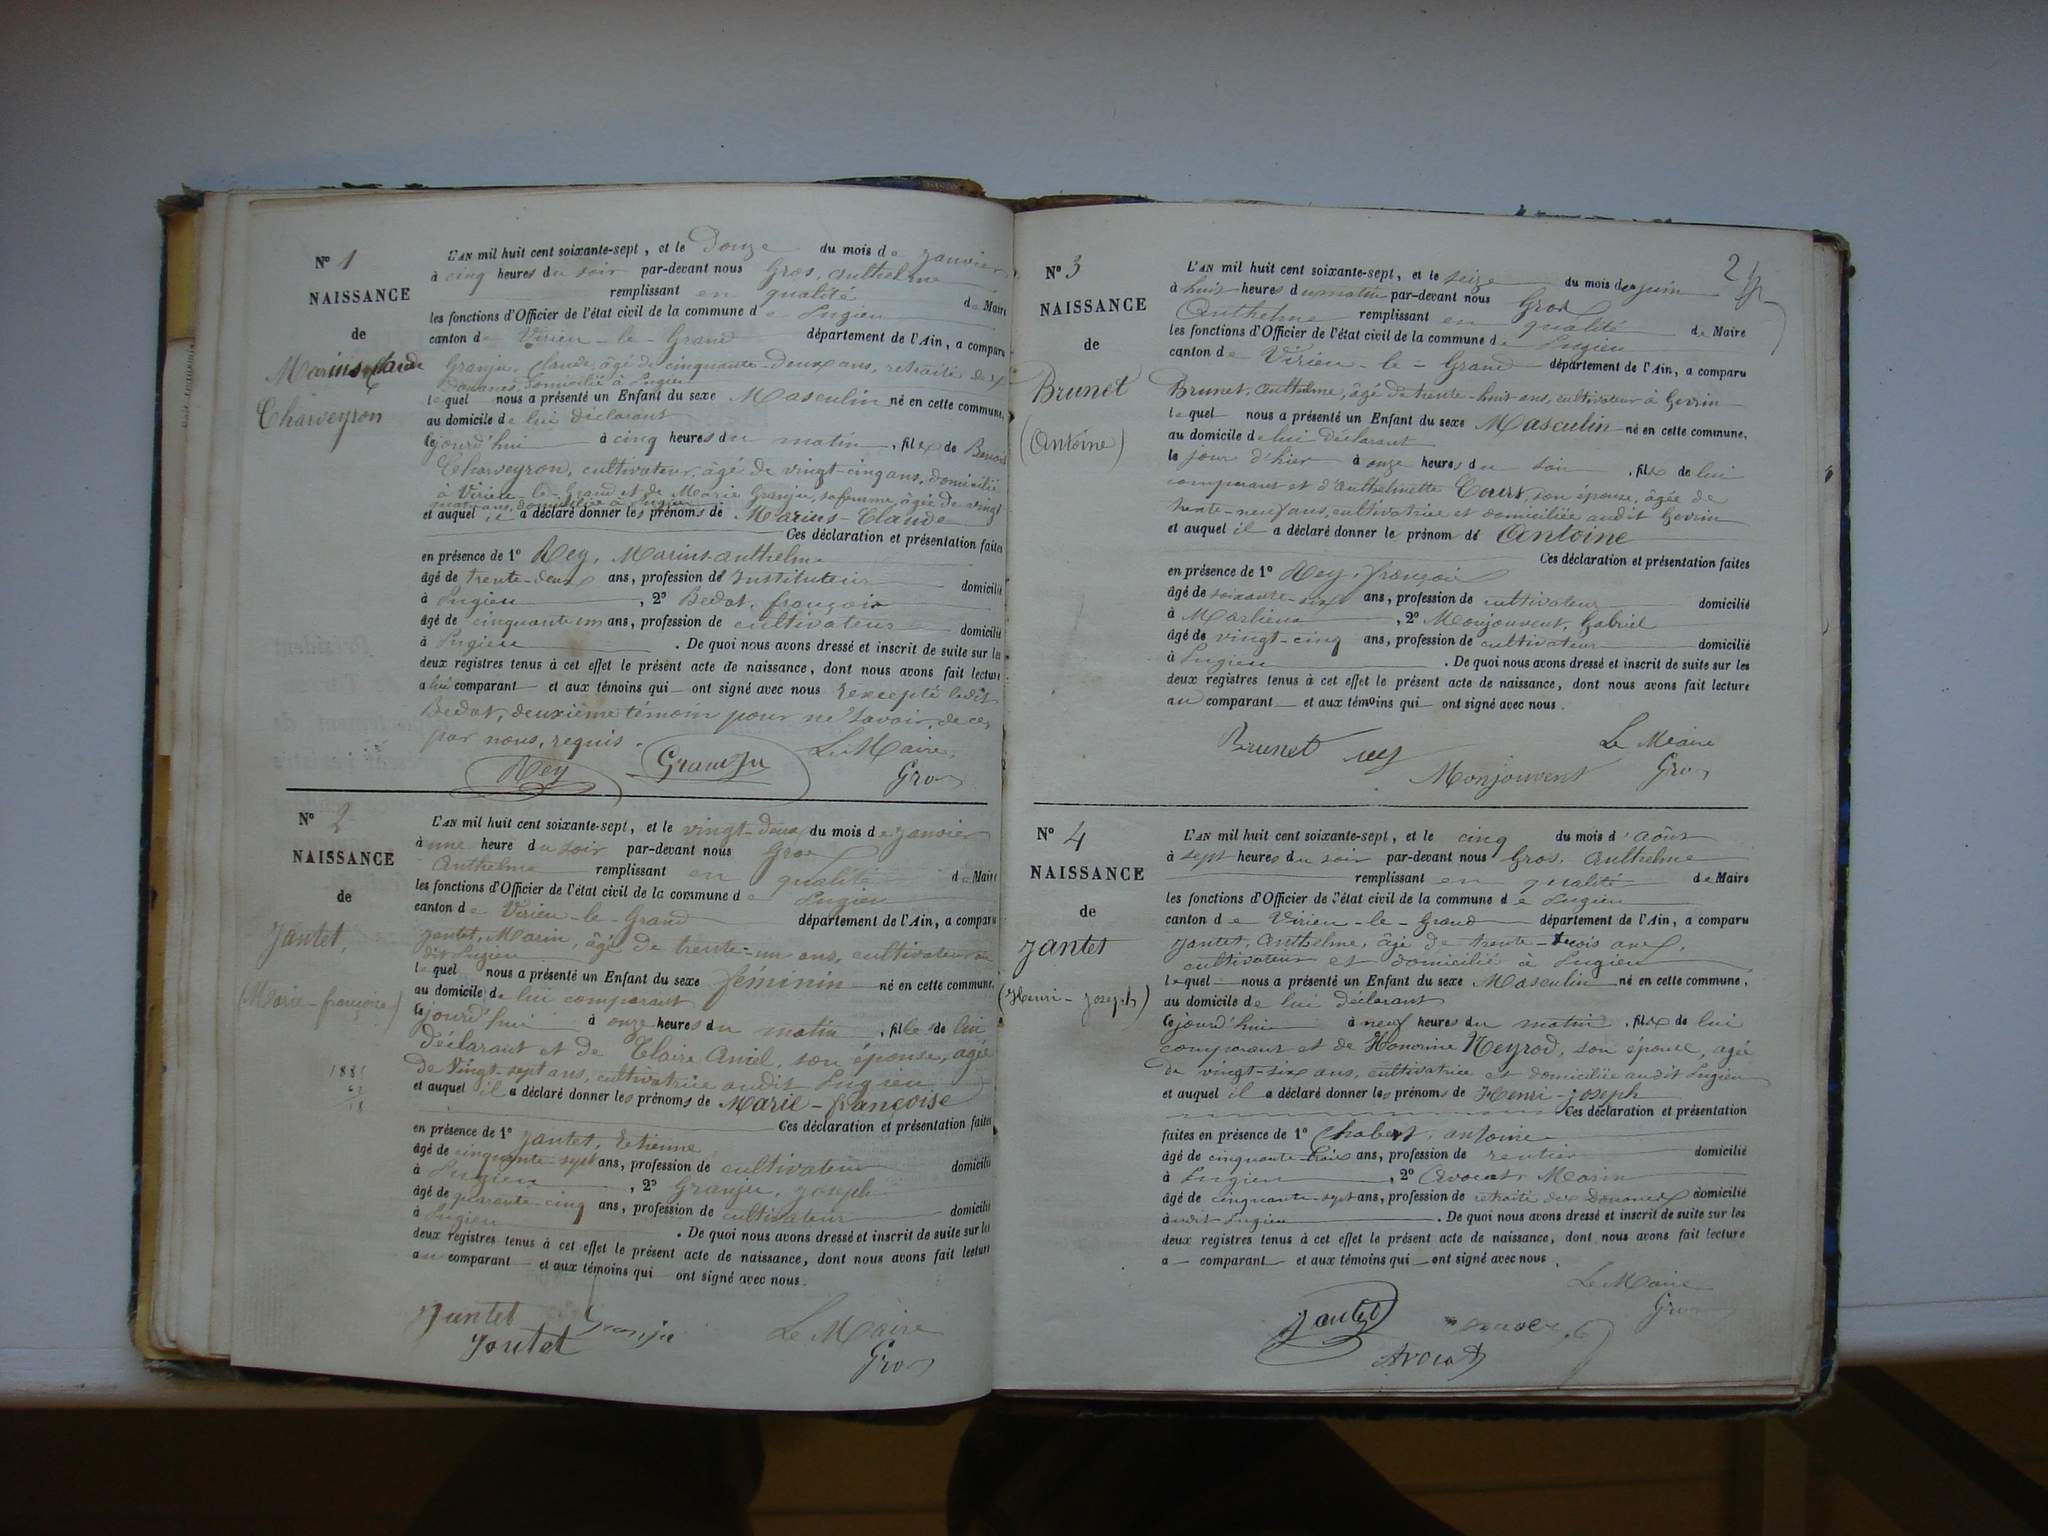 N° 1
NAISSANCE
de
Marius Claude
Charveyron
L'AN mil huit cent soixante-sept, et le Douze du mois de janvier
à cinq heures du soir par-devant nous Gros, Anthelme
remplissant en qualité de Maire
les fonctions d'Officier de l'état civil de la commune de Pugieu
canton de Virieu-le-Grand département de l'Ain, a comparu
Granju, Claude, âgé de cinquante-deux ans, retraité des
douanes, domicilié à Pugieu
lequel nous a présenté un Enfant du sexe Masculin né en cette commune,
au domicile de lui déclarant
cejourd'hui à cinq heures du matin, fils de Benoit
Charveyron, cultivateur, âgé de vingt-cinq ans, domicilié
à Virieu-le-Grand et de Marie Granju, sa femme, âgée de vingt
quatre ans, domiciliée à Pugieu
et auquel il a déclaré donner les prénoms de Marius-Claude
Ces déclaration et présentation faites
en présence de 1° Rey, Marius-Anthelme
âgé de trente-deux ans, profession de Instituteur domicilié
à Pugieu, 2° Bedat, françois
âgé de cinquante un ans, profession de cultivateur domicilié
à Pugieu. De quoi nous avons dressé et inscrit de suite sur les
deux registres tenus à cet effet le présent acte de naissance, dont nous avons fait lecture
a lui comparant et aux témoins qui ont signé avec nous excepté ledit
Bedat, deuxième témoin pour ne savoir, de ce,
par nous, requis.
Le Maire,
Rey Granju Gros
N° 2
NAISSANCE
de
Jantet,
(Marie-françoise)
1885
L'AN mil huit cent soixante-sept, et le vingt-deux du mois de janvier
à une heure du soir par-devant nous Gros
Anthelme remplissant en qualité de Maire
les fonctions d'Officier de l'état civil de la commune de Pugieu
canton de Virieu-le-Grand département de l'Ain, a comparu
Jantet, Marin, âgé de trente-un ans, cultivateur au
dit Pugieu
lequel nous a présenté un Enfant du sexe féminin né en cette commune,
au domicile de lui comparant
cejourd'hui à onze heures du matin, fille de lui
déclarant et de Claire Aniel, son épouse, agée
de Vingt-sept ans, cultivatrice audit Pugieu
et auquel il a déclaré donner les prénoms de Marie-françoise
Ces déclaration et présentation faites
en présence de 1° Jantet, Etienne
âgé de cinquante-sept ans, profession de cultivateur domicilié
à Pugieu, 2° Granju, Joseph
âgé de quarante-cinq ans, profession de cultivateur domicilié
à Pugieu. De quoi nous avons dressé et inscrit de suite sur les
deux registres tenus à cet effet le présent acte de naissance, dont nous avons fait lecture
au comparant et aux témoins qui ont signé avec nous.
Jantet Granju Le Maire
Jantet Gros
2
N° 3
NAISSANCE
de
Brunet
(Antoine)
L'AN mil huit cent soixante-sept, et le seize du mois de juin
à huit heures du matin par-devant nous Gros
Anthelme remplissant en qualité de Maire
les fonctions d'Officier de l'état civil de la commune de Pugieu
canton de Virieu-le-Grand département de l'Ain, a comparu
Brunet, Anthelme, âgé de trente-huit ans, cultivateur à Gevrin
lequel nous a présenté un Enfant du sexe Masculin né en cette commune,
au domicile de lui Déclarant
le jour d'hier à onze heures du soir, fils de lui
comparant et d'Anthelmette Cours, son épouse, âgée de
trente-neuf ans, cultivatrice et domiciliée audit Gevrin
et auquel il a déclaré donner le prénom de Antoine
Ces déclaration et présentation faites
en présence de 1° Rey, françois
âgé de soixante-six ans, profession de cultivateur domicilié
à Marlieu, 2° Monjouvent, Gabriel
âgé de vingt-cinq ans, profession de cultivateur domicilié
à Pugieu. De quoi nous avons dressé et inscrit de suite sur les
deux registres tenus à cet effet le présent acte de naissance, dont nous avons fait lecture
au comparant et aux témoins qui ont signé avec nous.
Brunet rey Le Maire
Monjouvent Gros
N° 4
NAISSANCE
de
Jantet
(Henri-Joseph)
L'AN mil huit cent soixante-sept, et le cinq du mois d'Août
à sept heures du soir par-devant nous Gros, Anthelme
remplissant en qualité de Maire
les fonctions d'Officier de l'état civil de la commune de Pugieu
canton de Virieu-le-Grand département de l'Ain, a comparu
Jantet, Anthelme, âgé de trente-trois ans,
cultivateur et domicilié à Pugieu
lequel nous a présenté un Enfant du sexe Masculin né en cette commune,
au domicile de lui déclarant
cejourd'hui à neuf heures du matin, fils de lui
comparant et de Honorine Neyrod, son épouse, agée
de vingt-six ans, cultivatrice et domiciliée audit Pugieu
et auquel il a déclaré donner les prénoms de Henri-Joseph
Ces déclaration et présentation
faites en présence de 1° Chabert, antoine
âgé de cinquante-trois ans, profession de rentier domicilié
à Pugieu, 2° Avocat, Marin
âgé de cinquante-sept ans, profession de retraité des Douanes domicilié
audit Pugieu. De quoi nous avons dressé et inscrit de suite sur les
deux registres tenus à cet effet le présent acte de naissance, dont nous avons fait lecture
a comparant et aux témoins qui ont signé avec nous.
Le Maire
Jantet Gros
Avocat